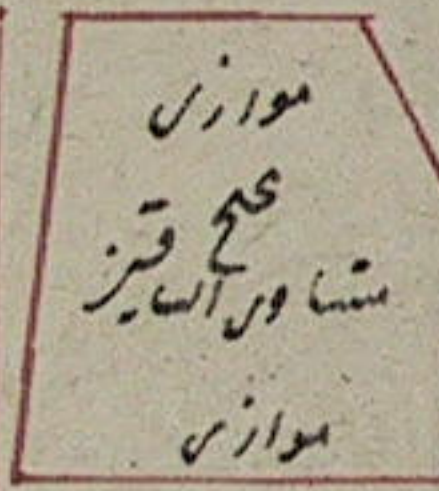 موازی
متساوی الساقین
موازی